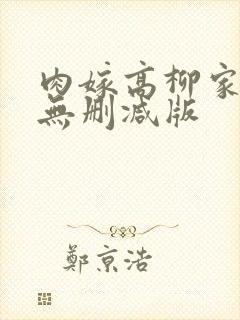 肉嫁高柳家
無删减版
鄭京浩